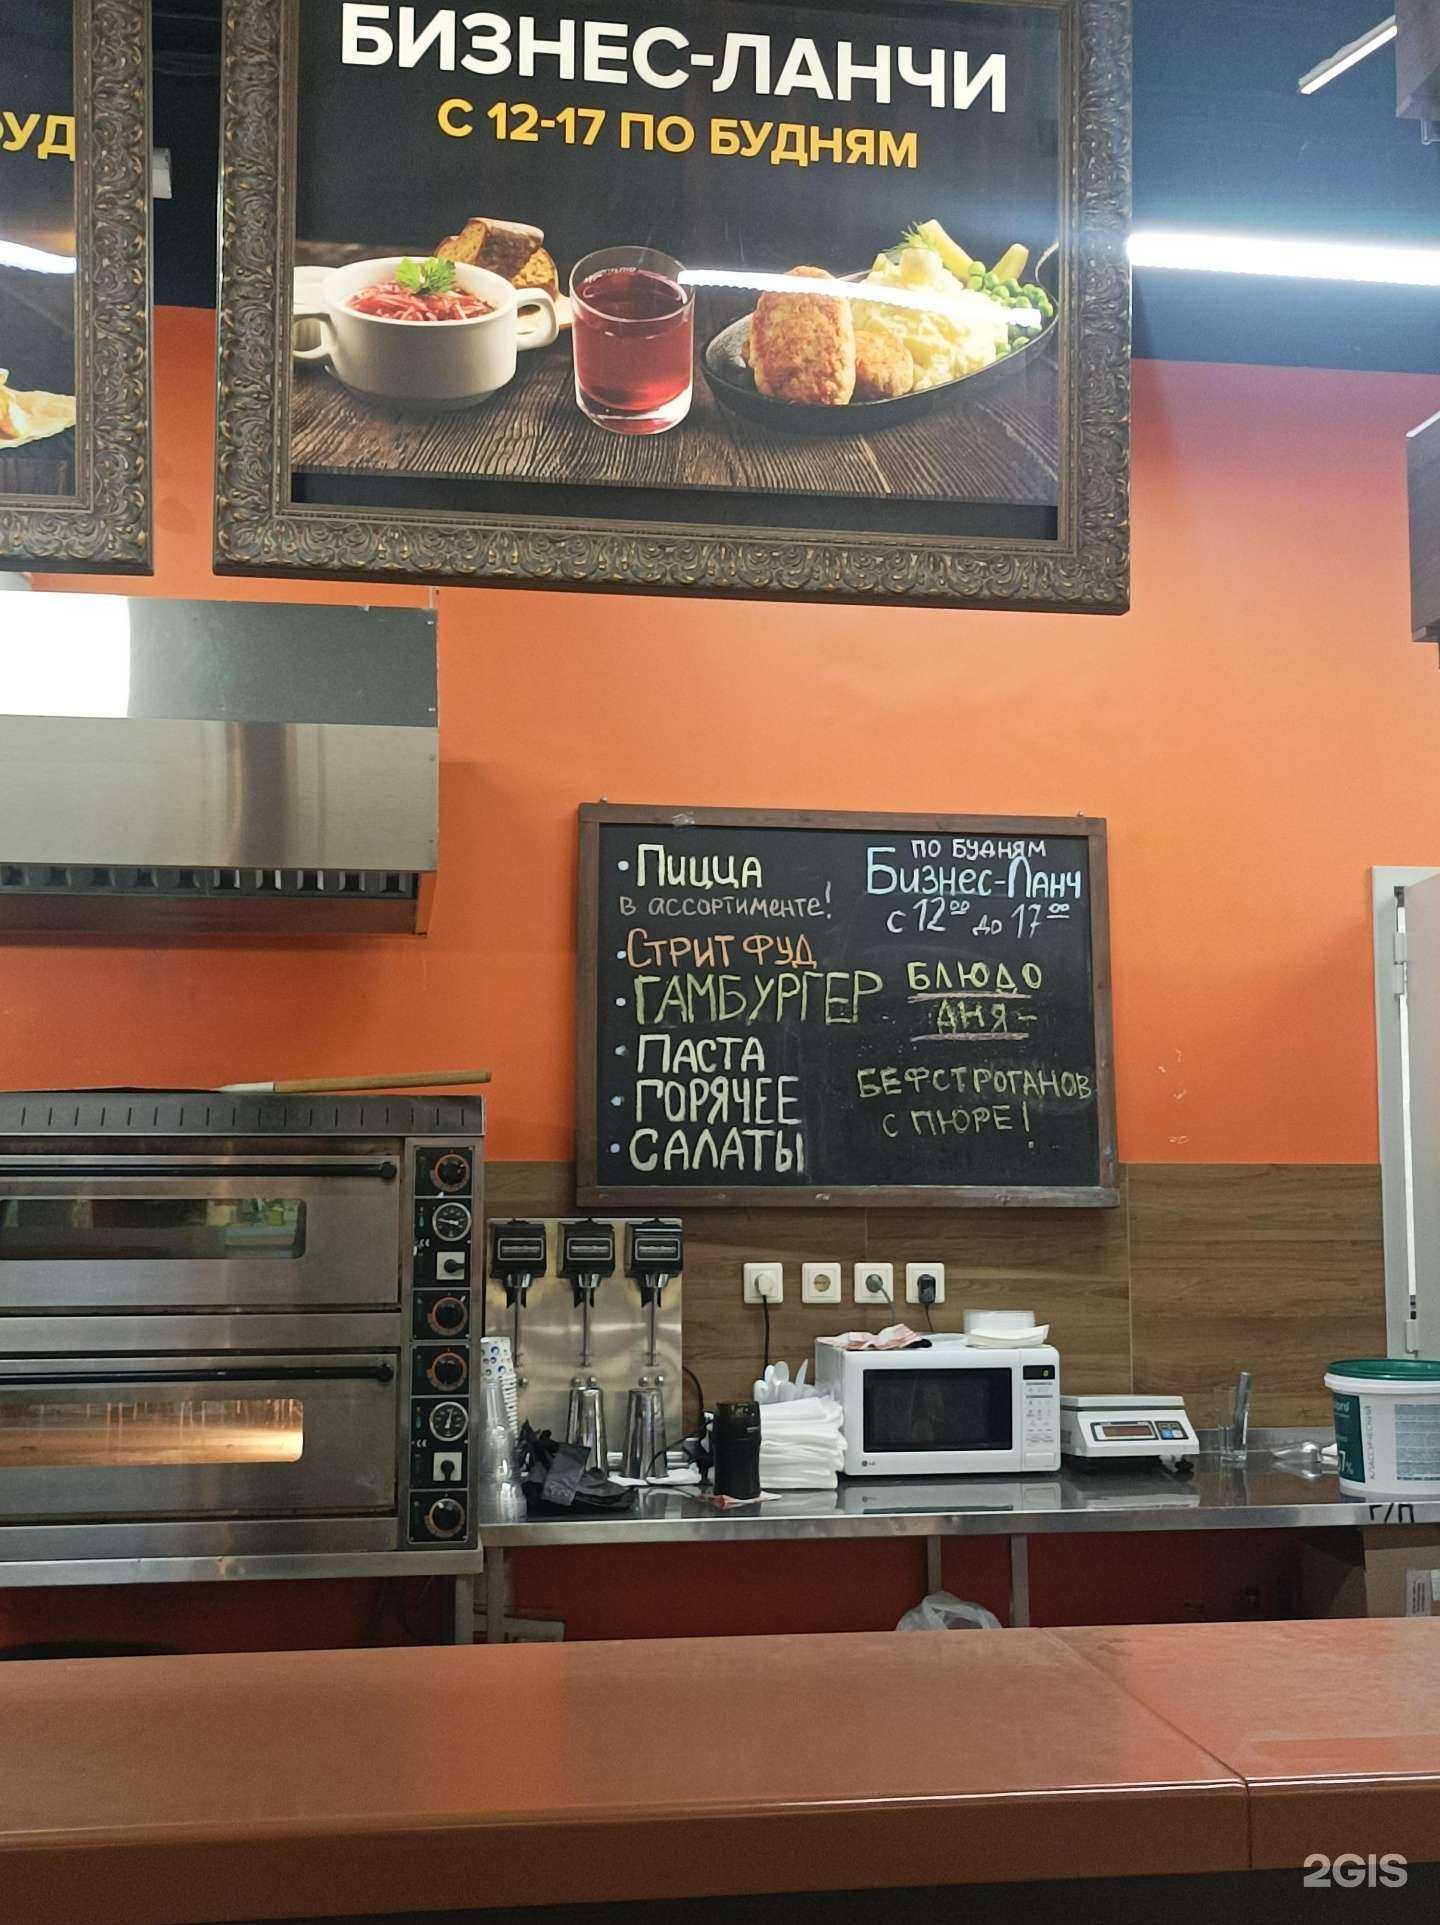 БИЗНЕС-ЛАНЧИ
С 12-17 ПО БУДНЯМ
УД
• Пицца
в ассортименте!
• Стрит фуд
• ГАМБУРГЕР
• ПАСТА
• ГОРЯЧЕЕ
• САЛАТЫ
ПО БУДНЯМ
Бизнес-Ланч
с 12 00 до 17 00
БЛЮДО
ДНЯ-
БЕФСТРОГАНОВ
С ПЮРЕ!
LG
Г/П
2GIS